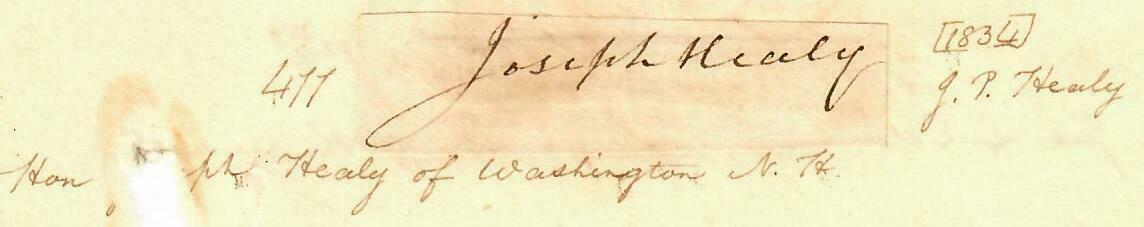 Joseph Healy
[1834]
477
J. P. Healy
Hon ph Healy of Washington N. H.